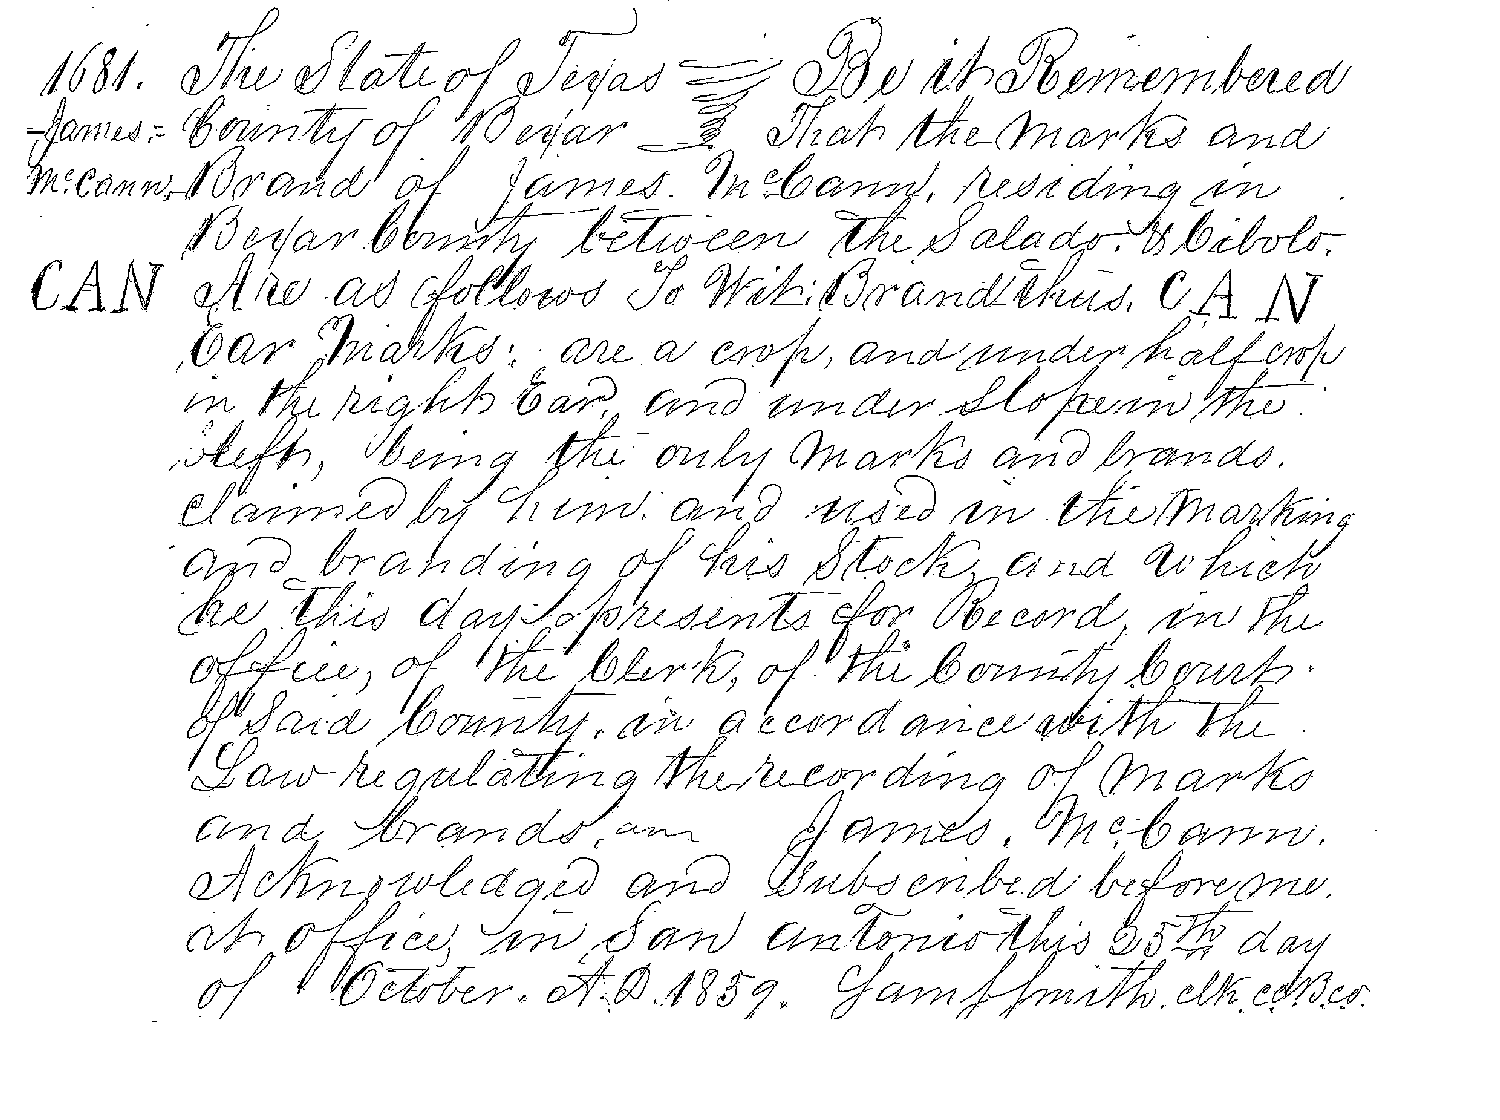 1681. The State of Texas Be it Remembered
James= County of Bexar That the Marks and
McCann. Brand of James. McCann, residing in
Bexar County between the Salado. & Cibolo.
CAN Are as follows To Wit: Brand thus. CAN
Ear Marks: are a crop, and under half crop
in the right Ear, and under Slope in the
left, being the only Marks and brands.
claimed by him. and used in the Marking
and branding of his Stock, and which
he this day presents for Record, in the
office, of the Clerk, of the County Court.
of Said County. in accordance with the
Law regulating the recording of Marks
and brands. James. McCann.
Acknowledged and Subscribed before me.
at office, in San antonio this 25th day
of October. A.D. 1859. Smith. clk. c.c.B.co.